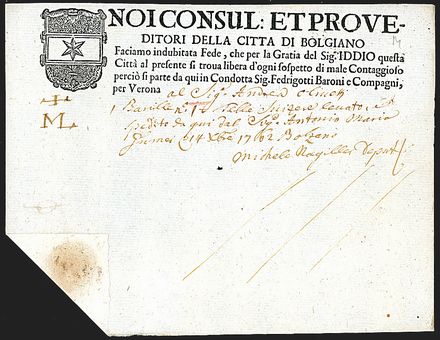 NOI CONSUL: ET PROVE-
DITORI DELLA CITTA DI BOLGIANO
Faciamo indubitata Fede, che per la Gratia del Sig: IDDIO questa
Città al presente si trova libera d'ogni sospetto di male Contagioso
perciò si parte da qui in Condotta Sig. Fedrigotti Baroni e Compagni,
per Verona
al Sig. Andrea
1 Barille N.
spedito da qui dal Sig. Antonio Maria
14 Xbre 1762 Bolzano
Michele Deput
M